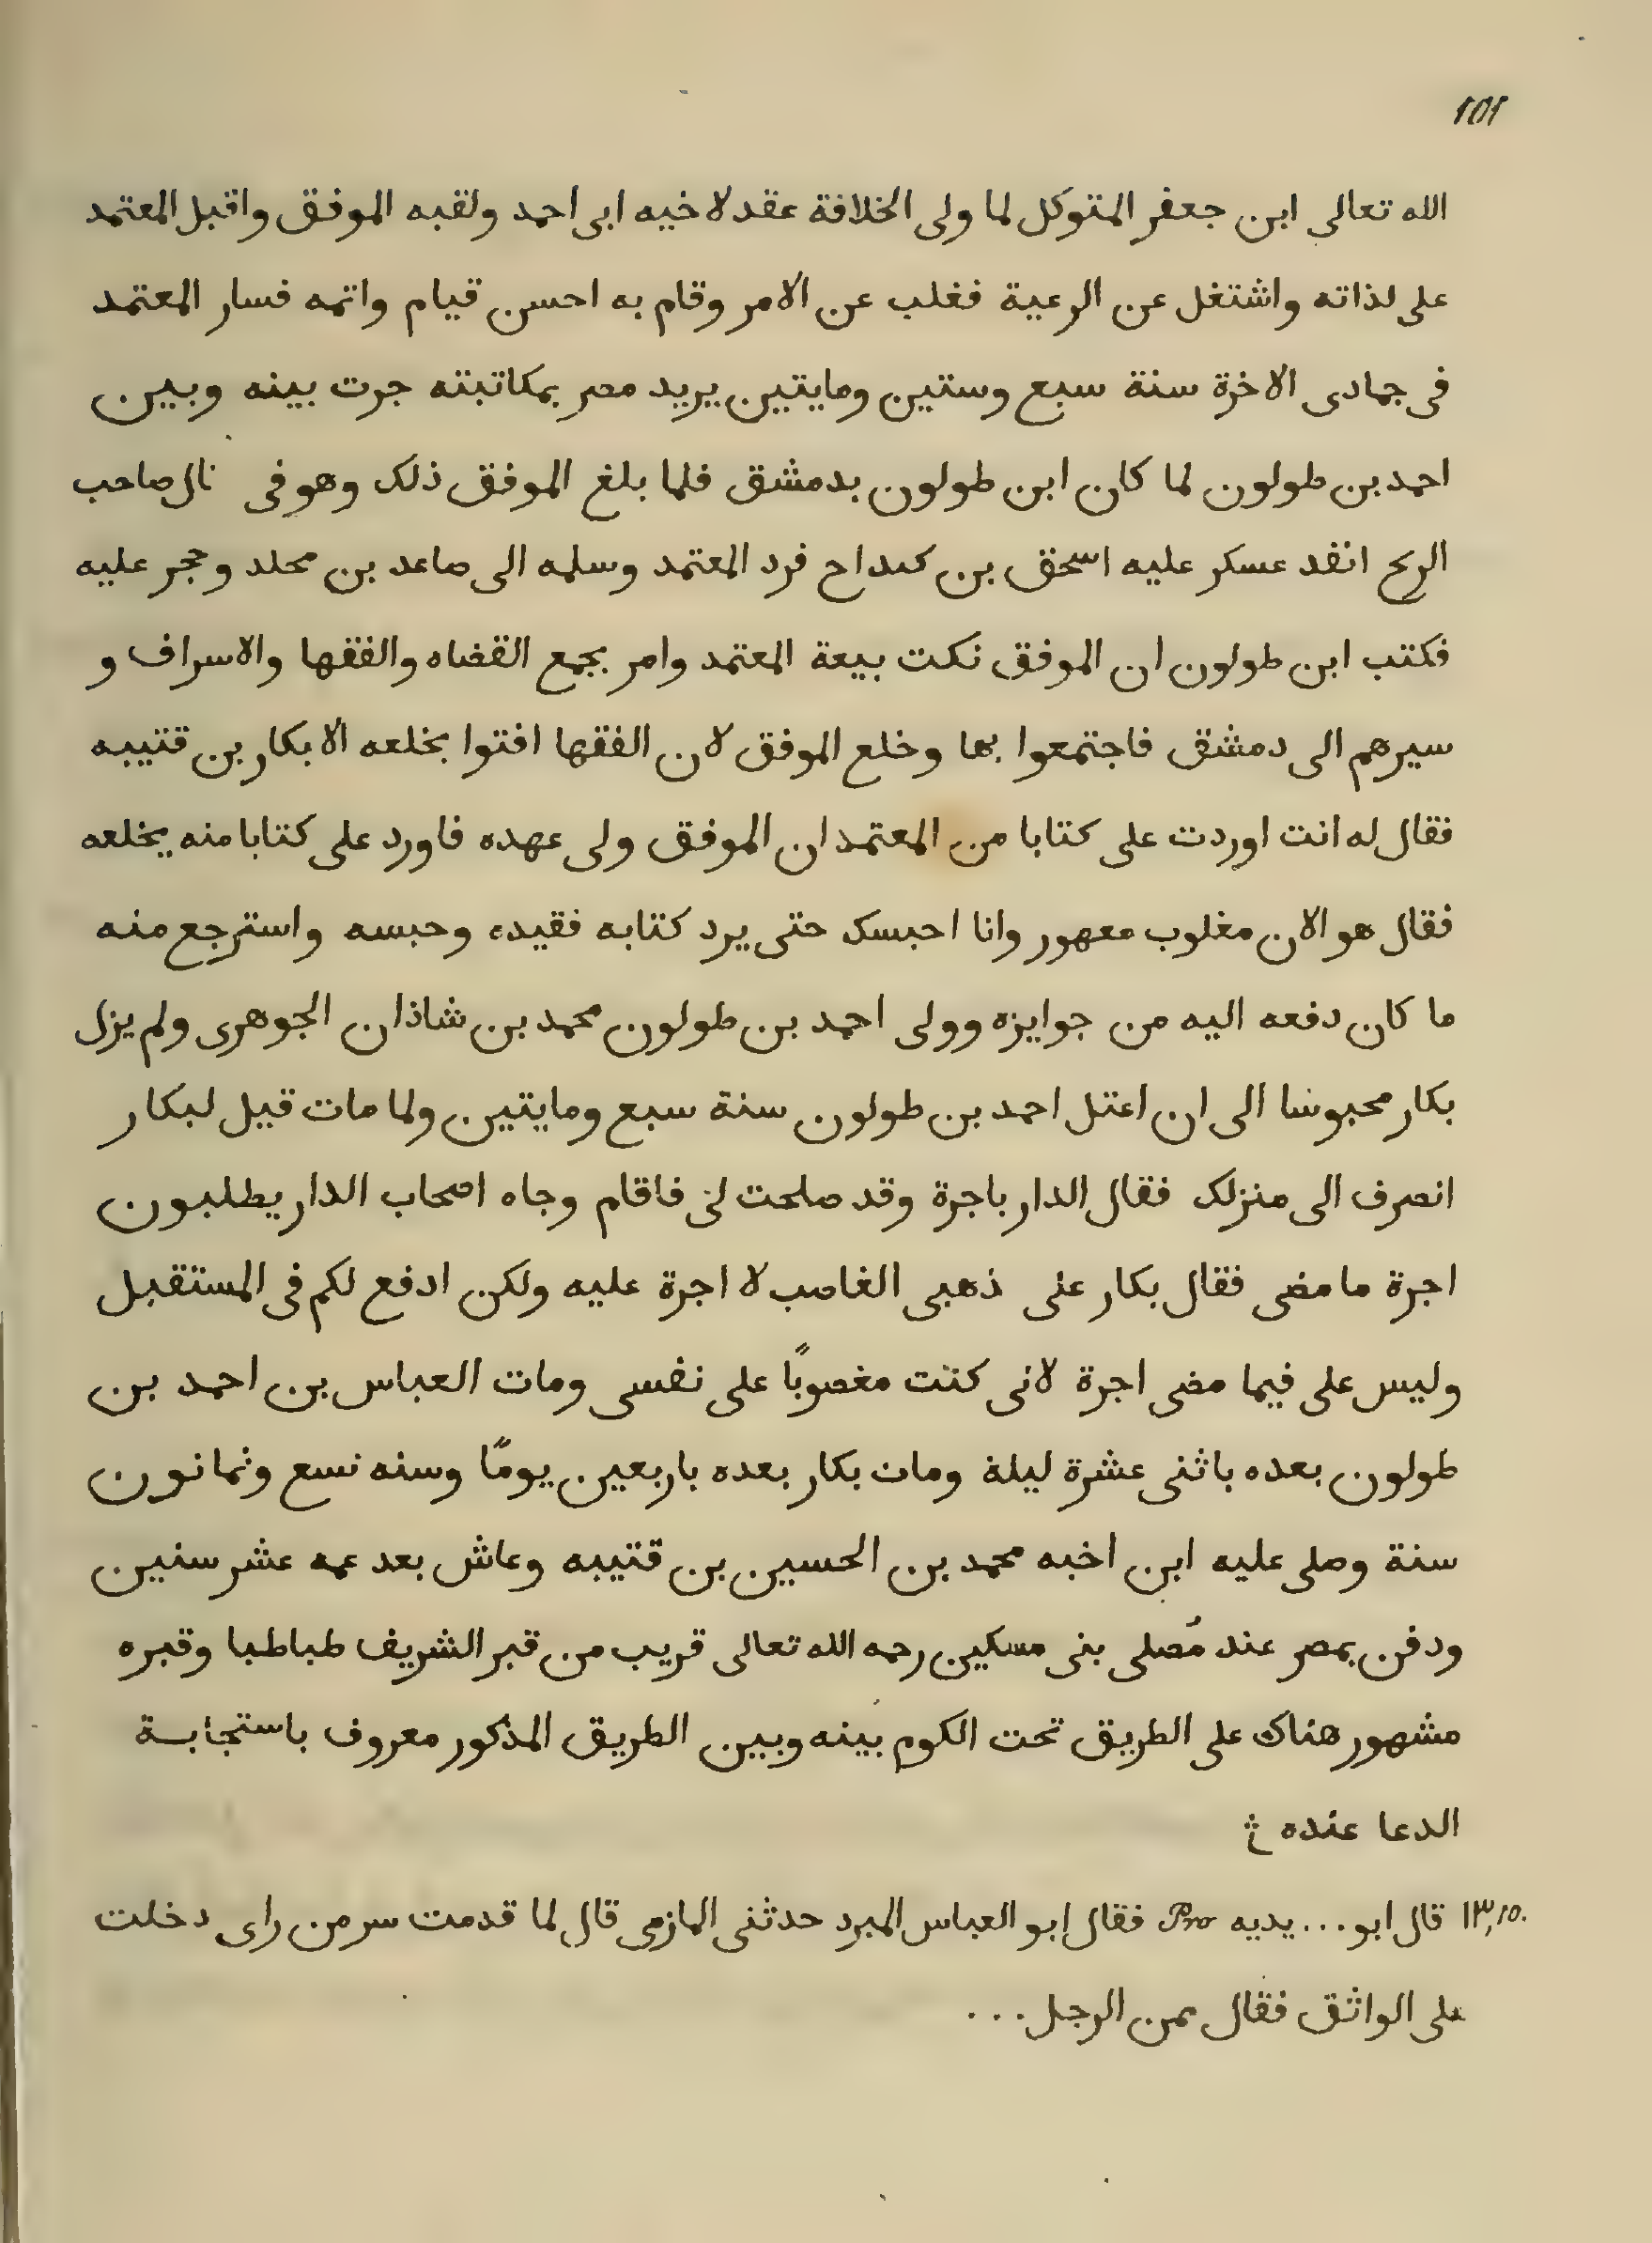 101
الله تعالى ابن جعفر المتوكل لما ولى الخلافة عقد لاخيه ابى احمد ولقبه الموفق واقبل المعتمد
على لذاته واشتغل عن الرعية فغلب عن الامر وقام به احسن قيام واتمه فسار المعتمد
فى جمادى الاخرة سنة سبع وستين ومايتين يريد مصر بمكاتبته جرت بينه وبين
احمد بن طولون لما كان ابن طولون بدمشق فلما بلغ الموفق ذلك وهو فى نال صاحب
الريح انفد عسكر عليه اسحق بن كنداح فرد المعتمد وسلمه الى صاعد بن محلد وحجر عليه
فكتب ابن طولون ان الموفق نكت بيعة المعتمد وامر بجمع القضاه والفقها والاسراف و
سيرهم الى دمشق فاجتمعوا بها وخلع الموفق لان الفقها افتوا بخلعه الا بكار بن قتيبه
فقال له انت اوردت على كتابا من المعتمد ان الموفق ولى عهده فاورد على كتابا منه يخلعه
فقال هو الان مغلوب معهور وانا احبسك حتى يرد كتابه فقيده وحبسه واسترجع منه
ما كان دفعه اليه من جوايزه وولى احمد بن طولون محمد بن شاذان الجوهرى ولم يزل
بكار محبوسا الى ان اعتل احمد بن طولون سنة سبع ومايتين ولما مات قيل لبكار
انصرف الى منزلك فقال الدار باجرة وقد صلحت لى فاقام وجاه اصحاب الدار يطلبون
اجرة ما مضى فقال بكار على ذهبى الغاصب لا اجرة عليه ولكن ادفع لكم فى المستقبل
وليس على فيما مضى اجرة لانى كنت مغصوبًا على نفسى ومات العباس بن احمد بن
طولون بعده باثنى عشرة ليلة ومات بكار بعده باربعين يومًا وسنه تسع وثمانون
سنة وصلى عليه ابن اخبه محمد بن الحسين بن قتيبه وعاش بعد عمه عشر سنين
ودفن بمصر عند مُصلى بنى مسكين رحمه الله تعالى قريب من قبر الشريف طباطبا وقبره
مشهور هناك على الطريق تحت الكوم بينه وبين الطريق المذكور معروف باستجابة
الدعا عنده
١٣,١٥. قال ابو ... يديه Pro فقال ابو العباس المبرد حدثنى المازمى قال لما قدمت سر من راى دخلت
على الواثق فقال ممن الرجل ...